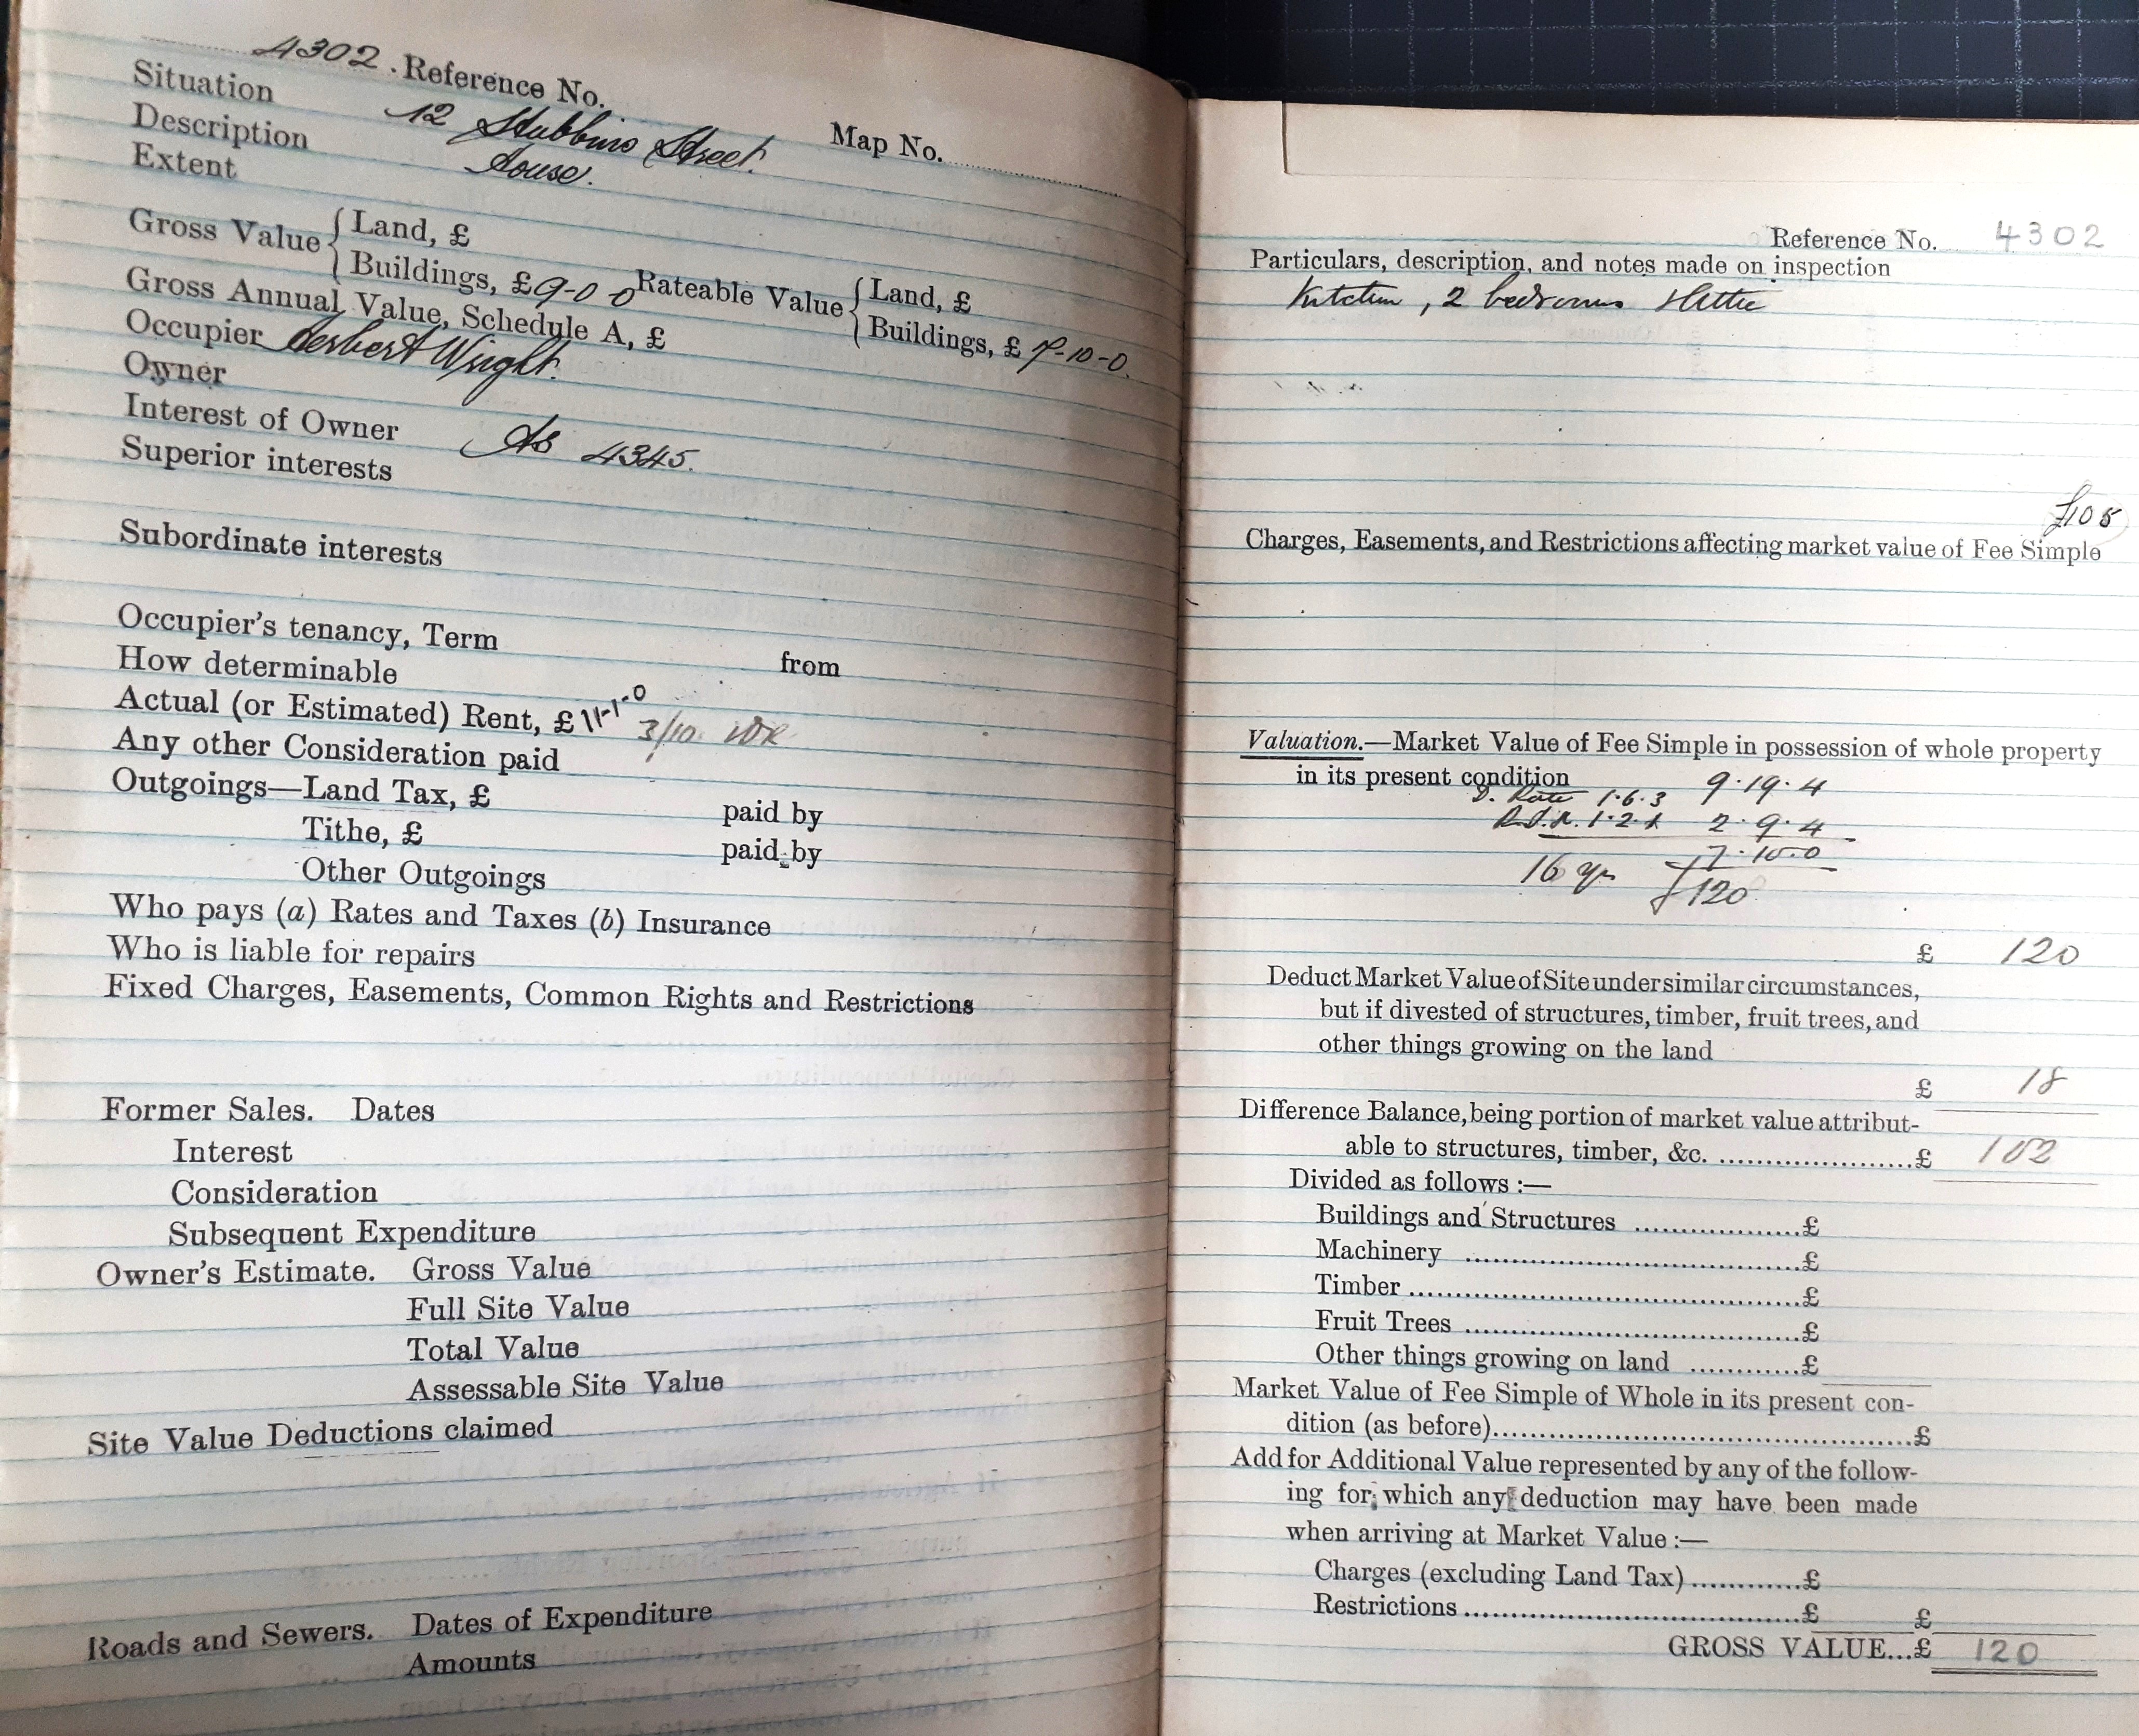 4302. Reference No.
Situation 12 Stubbins Street. Map No.
Description House.
Extent
Gross Value { Land, £
Buildings, £9-0-0 Rateable Value { Land, £
Buildings, £7-10-0.
Gross Annual Value, Schedule A, £
Occupier Herbert Wright.
Owner
Interest of Owner As 4345.
Superior interests
Subordinate interests
Occupier's tenancy, Term from
How determinable
Actual (or Estimated) Rent, £11-1-0
3/10
Any other Consideration paid
Outgoings—Land Tax, £ paid by
Tithe, £ paid by
Other Outgoings
Who pays (a) Rates and Taxes (b) Insurance
Who is liable for repairs
Fixed Charges, Easements, Common Rights and Restrictions
Former Sales. Dates
Interest
Consideration
Subsequent Expenditure
Owner's Estimate. Gross Value
Full Site Value
Total Value
Assessable Site Value
Site Value Deductions claimed
Roads and Sewers. Dates of Expenditure
Amounts
Reference No. 4302
Particulars, description, and notes made on inspection
Kitchen, 2 bedrooms Attic
£105
Charges, Easements, and Restrictions affecting market value of Fee Simple
Valuation.—Market Value of Fee Simple in possession of whole property
in its present condition 9.19.4
Rate 1.6.3
2.9.4
7.10.0
16 yr £120
£ 120
Deduct Market Value of Site under similar circumstances,
but if divested of structures, timber, fruit trees, and
other things growing on the land
£ 18
Difference Balance, being portion of market value attribut-
able to structures, timber, &c. ....................£ 102
Divided as follows :—
Buildings and Structures ..................£
Machinery ....................................£
Timber ..........................................£
Fruit Trees ....................................£
Other things growing on land ...........£
Market Value of Fee Simple of Whole in its present con-
dition (as before)..............................................£
Add for Additional Value represented by any of the follow-
ing for which any deduction may have been made
when arriving at Market Value :—
Charges (excluding Land Tax)............£
Restrictions ......................................£ £
GROSS VALUE...£ 120